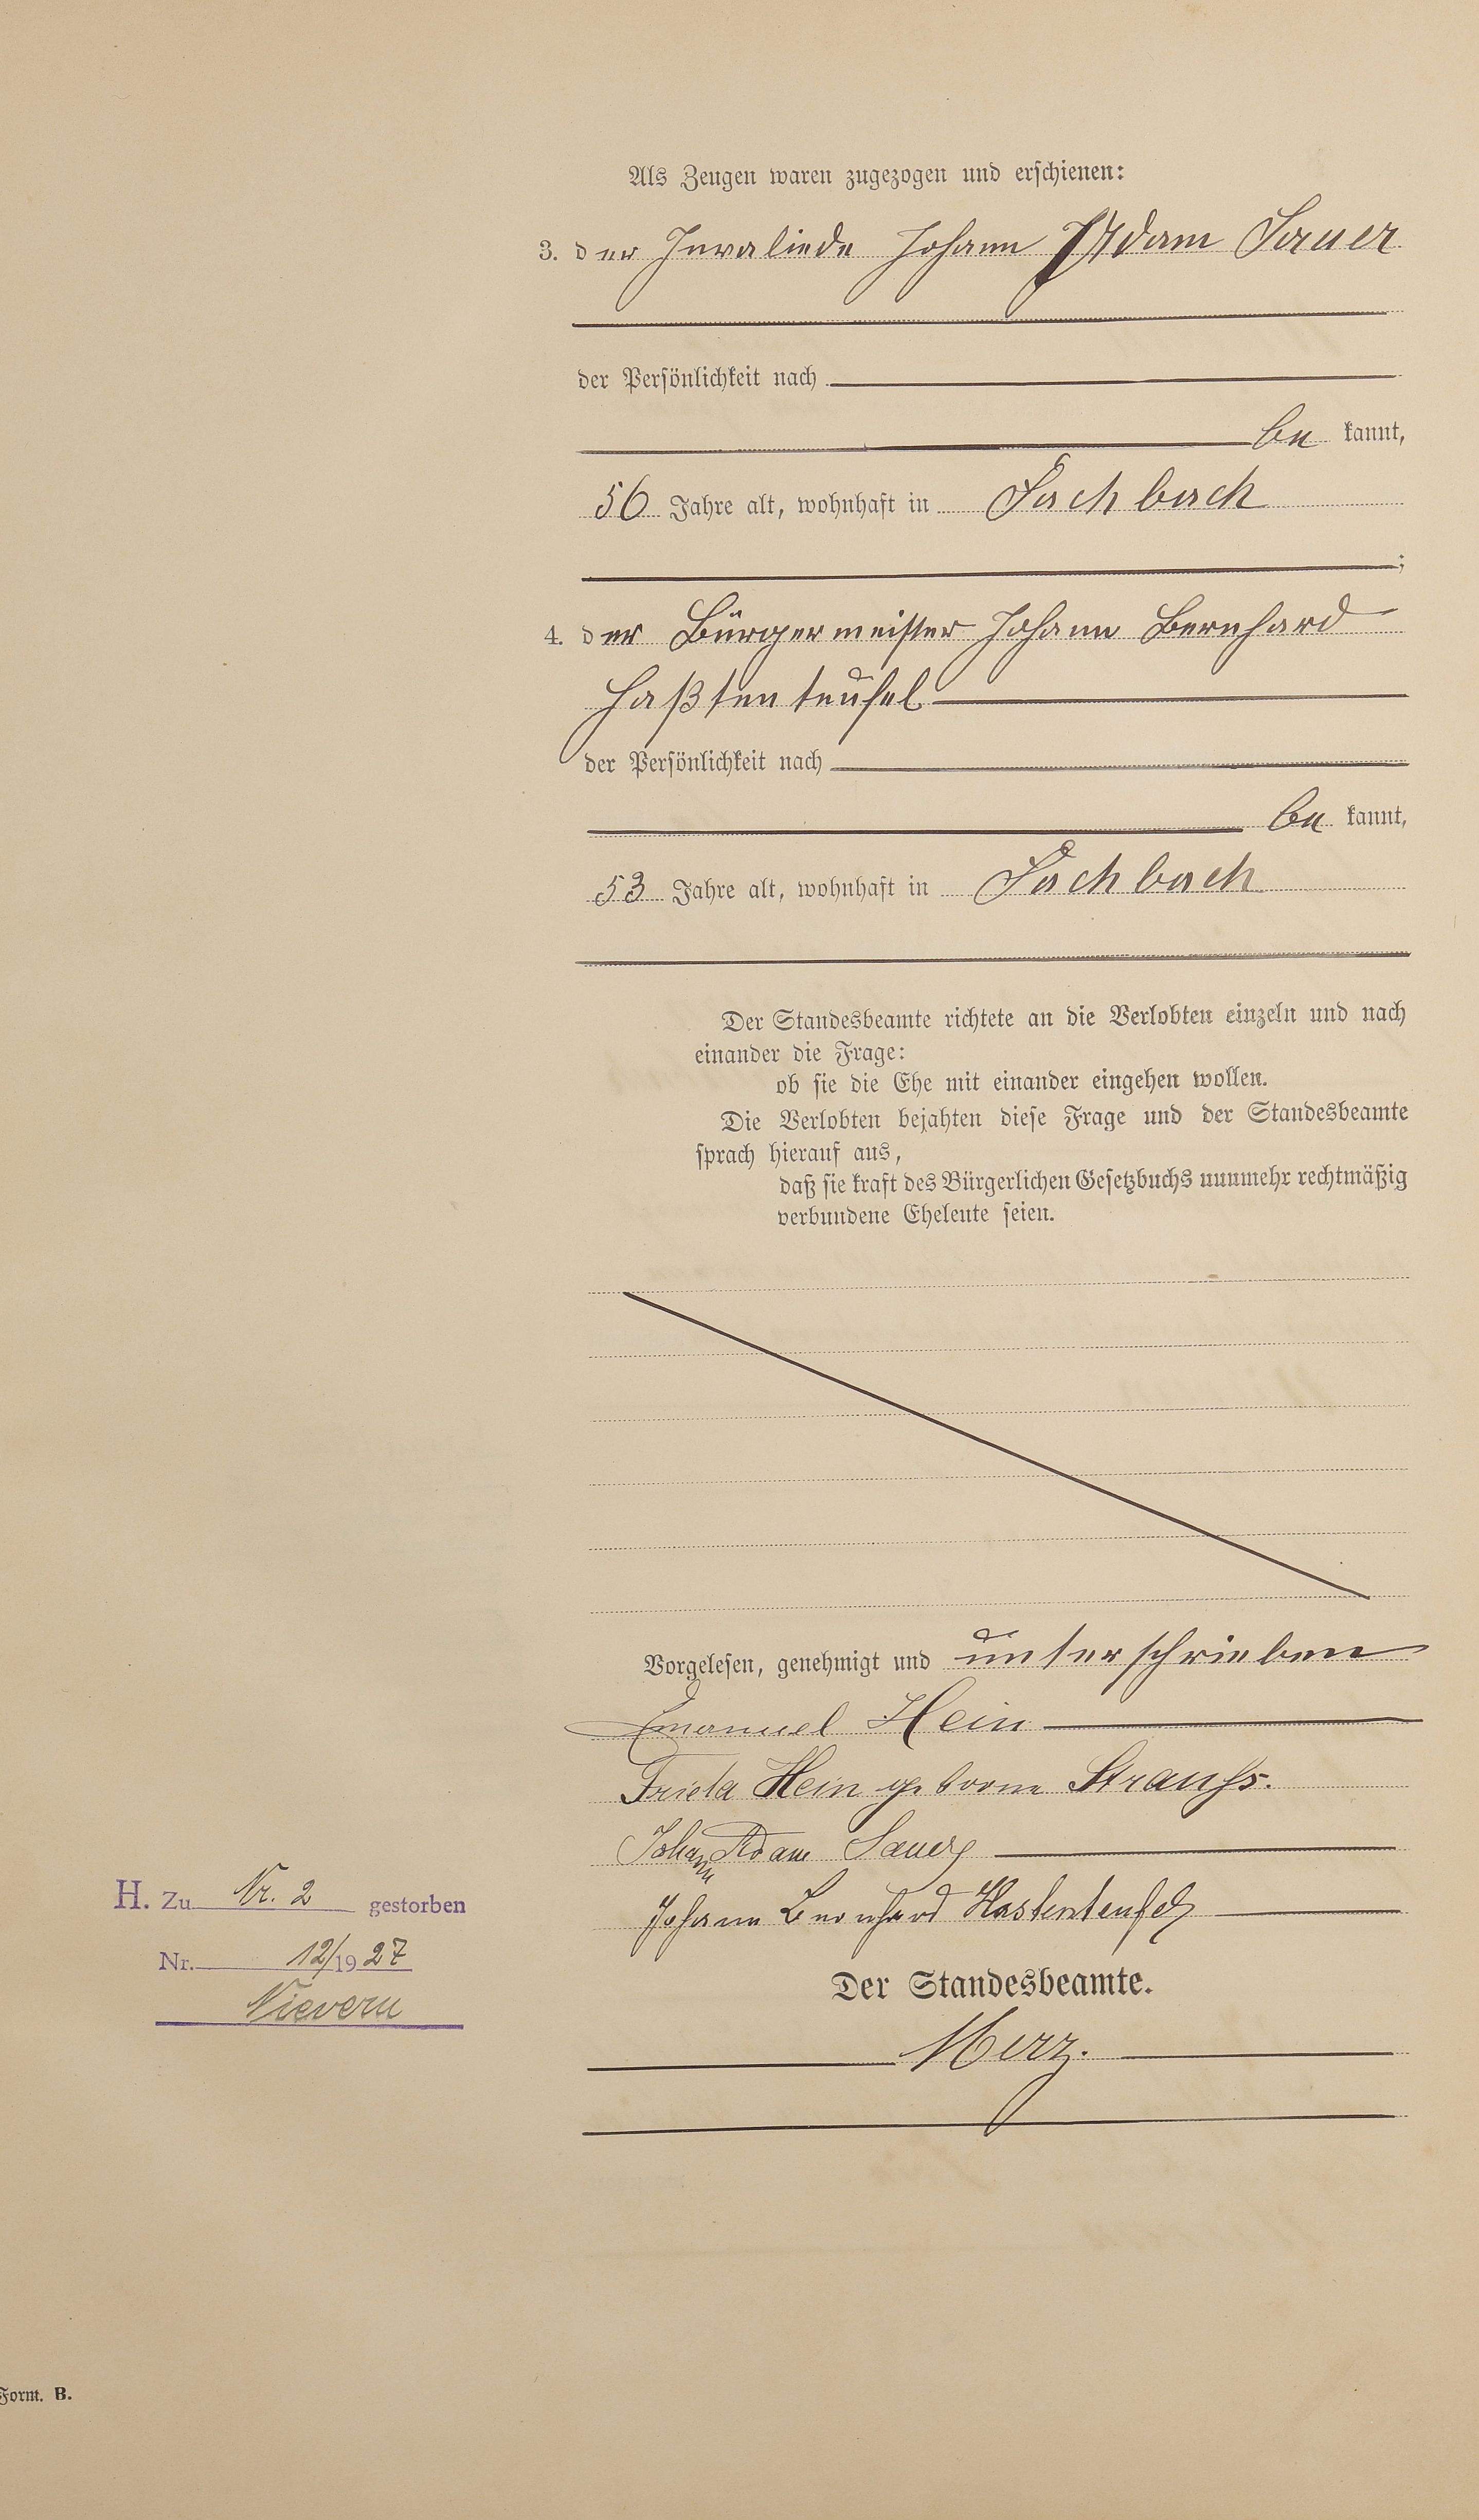 Als Zeugen waren zugezogen und erschienen:
3. der Invaliede Johann Adam Sauer
der Persönlichkeit nach
be kannt,
56 Jahre alt, wohnhaft in Fachbach
;
4. der Bürgermeister Johann Bernhard
Haßtenteufel
der Persönlichkeit nach
be kannt,
53 Jahre alt, wohnhaft in Fachbach
Der Standesbeamte richtete an die Verlobten einzeln und nach
einander die Frage:
ob sie die Ehe mit einander eingehen wollen.
Die Verlobten bejahten diese Frage und der Standesbeamte
sprach hierauf aus,
daß sie kraft des Bürgerlichen Gesetzbuchs nunmehr rechtmäßig
verbundene Eheleute seien.
Vorgelesen, genehmigt und unterschrieben
Emanuel Hein
Frieda Hein geborne Strauß.
Johann Adam Sauer
Johann Bernhard Hastenteufel
H. Zu Nr. 2 gestorben
Nr. 12/1927
Nievern
Der Standesbeamte.
Merz.
Form. B.